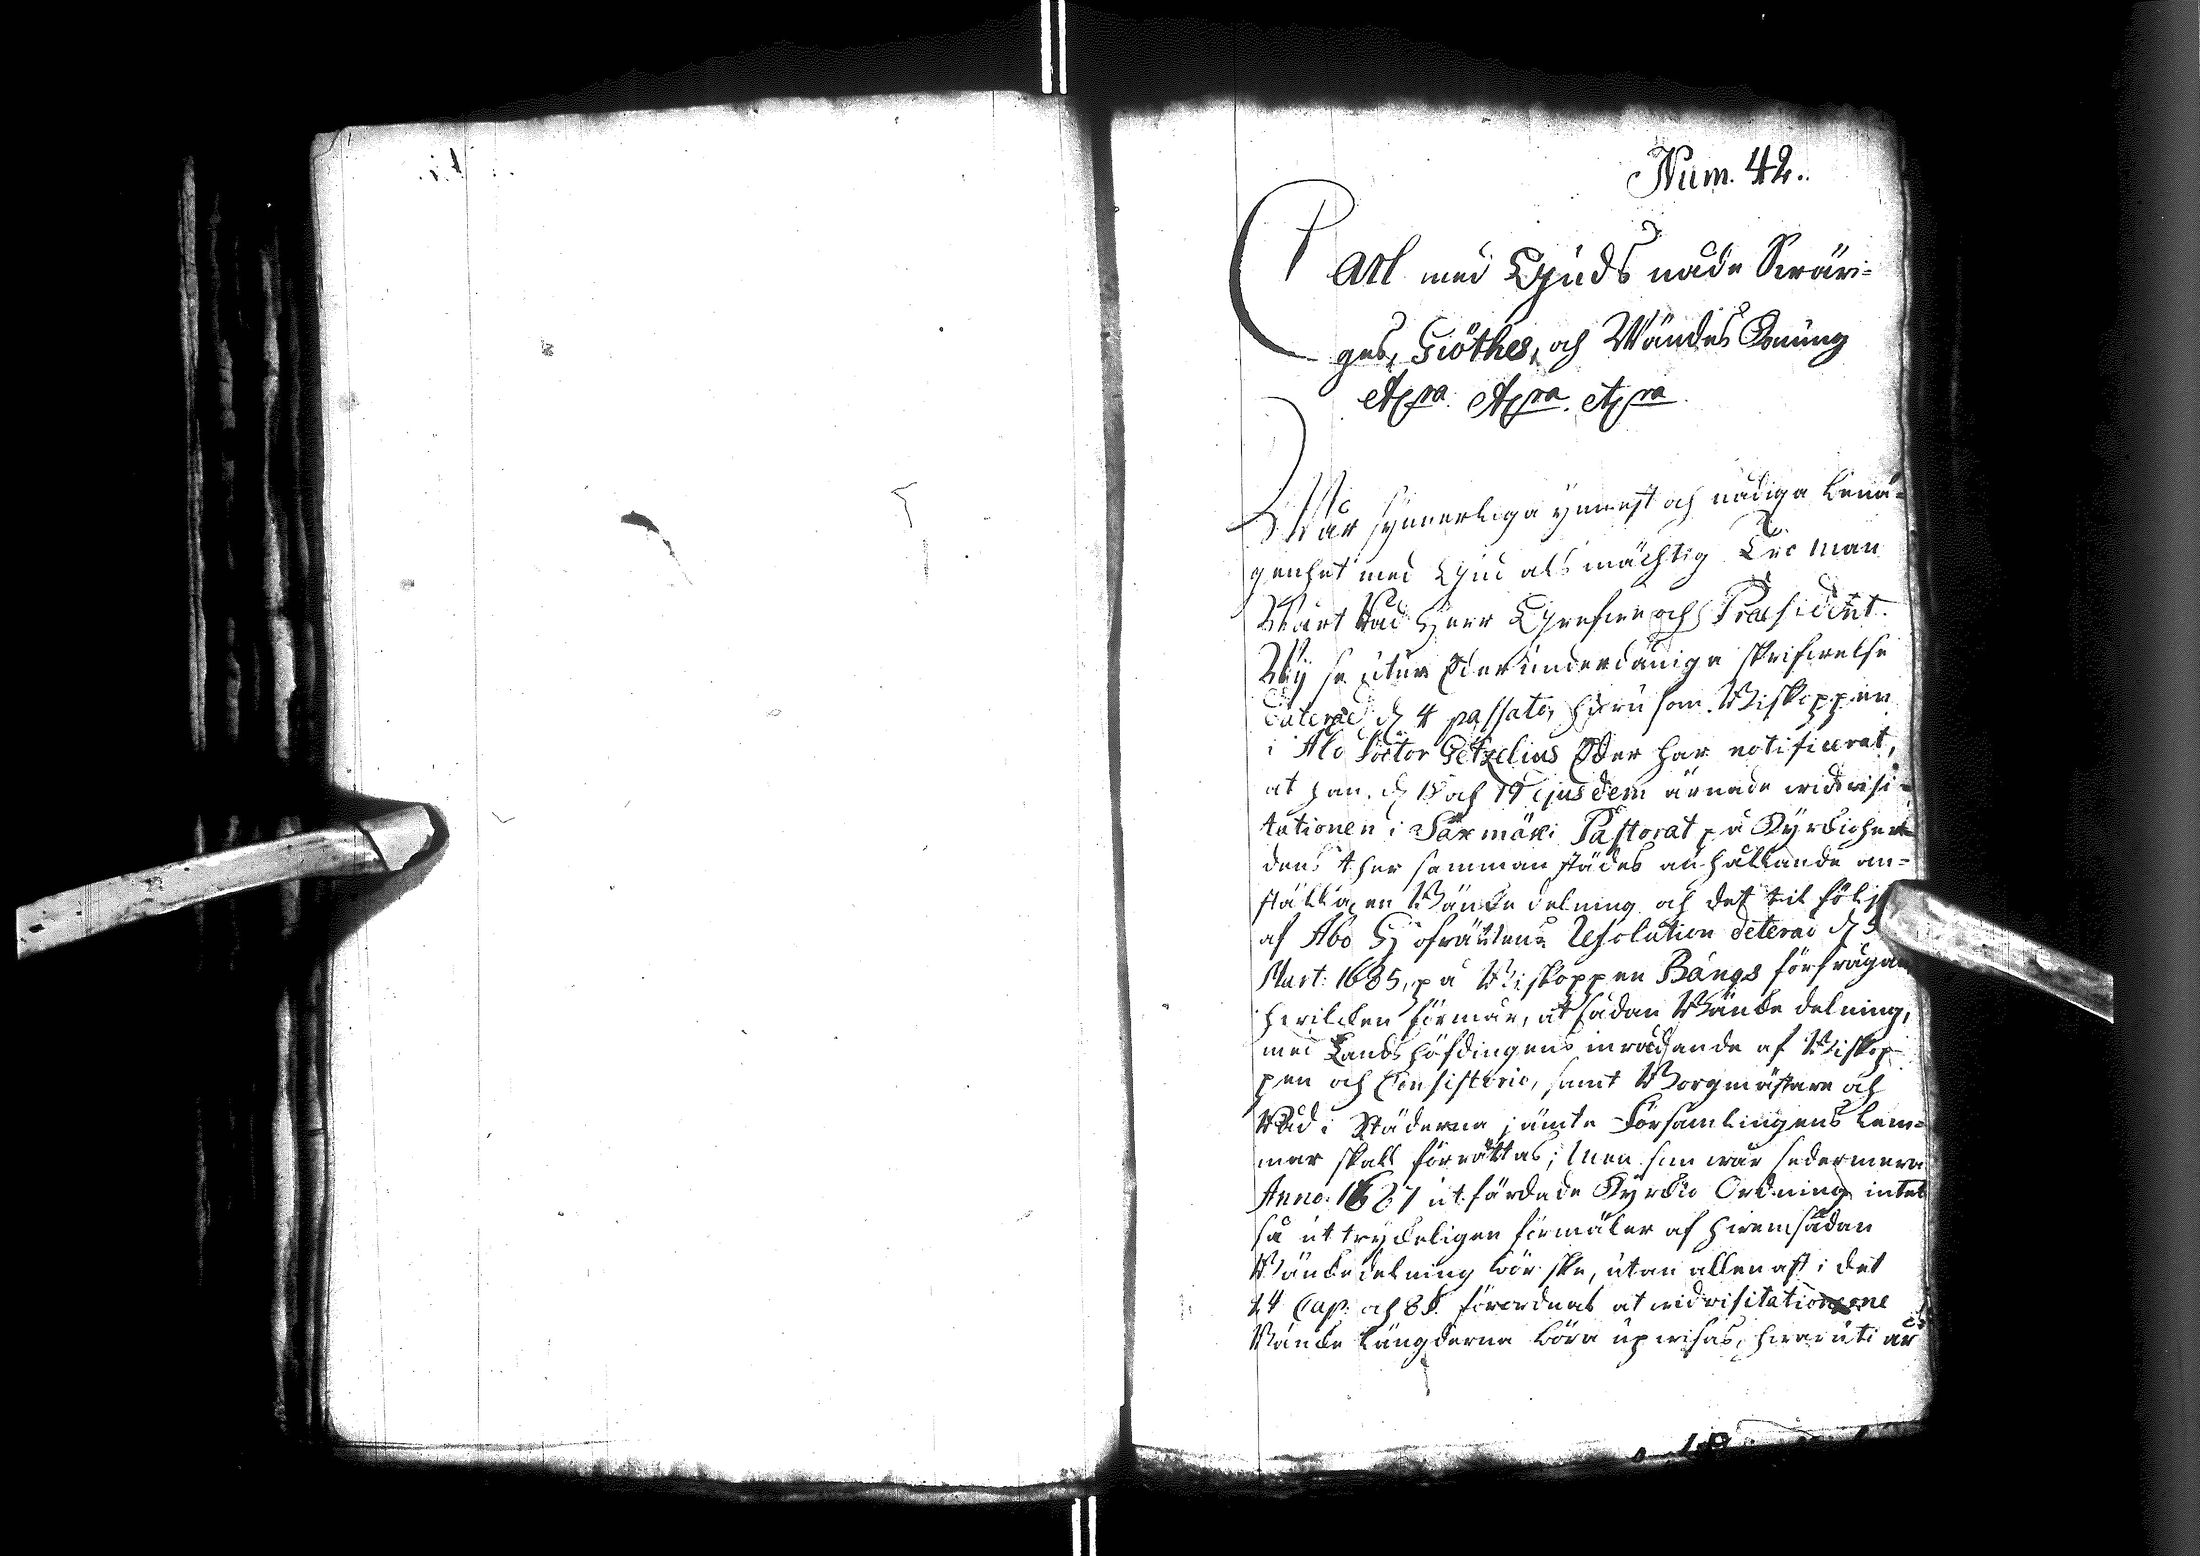 Num. 42.
Carl med Gudz nåde Swäri-
ges, Giöthes, och Wändes Konung
etc:ra etc:ra etc:ra
Wår synnerliga ynnest och nådiga benä-
genhet med Gud alsmächtig Tro Man
Wårt Råd Herr Grefwe och Præsident.
Wij se utur Eder underdånige skrifwelse
daterad d. 4 passato, huru som Biskoppen
i Åbo Doctor Getzelius Eder har notificerat,
at han d. 18 och 19 ejusdem ärnade wid visi-
tationen i Saxmäki Pastorat på Kyrckioher-
dens ther sammanstädes anhållande an-
ställa en Bäncke delning och det til följe
af Åbo Hofrättens Resolution daterad d. 5
Mart: 1685, på Biskoppen Bångs förfrågan
hwilcken förmår, at sådan Bäncke delning,
med Landshöfdingens inrådande af Biskop-
pen och Consistorio, samt Borgmästare och
Råd i Städerna jämte Församlingens Lem-
mar skall förrättas; Men som wår sedermera
Anno 1687 utfärdade Kyrckio Ordning intet
så uttryckeligen förmäler af hwem sådan
Bänckedelning bör ske, utan allenast i det
24 Cap. och 8 §. förordnas at wid visitationerne
Bäncke längderne böra upwisas, hwaruti är